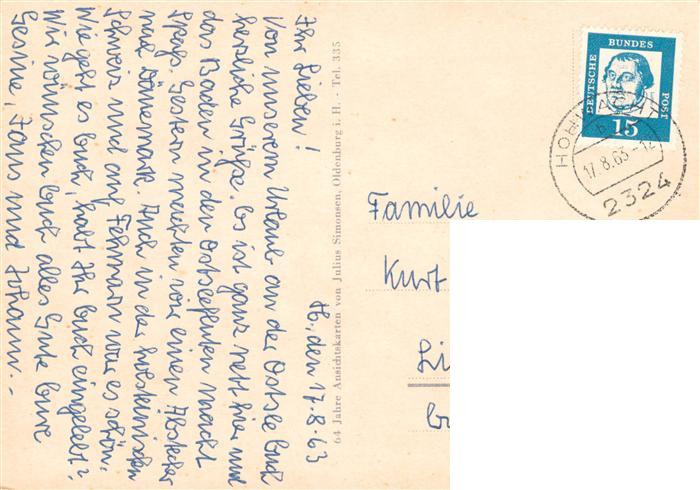 H., den 17.8.63
Ihr Lieben!
Von unserem Urlaub an der Ostsee Euch
herzliche Grüße. Es ist ganz nett hier und
das Baden in den Ostseefluten macht
Spaß. Gestern machten wir einen Abstecher
nach Dänemark. Auch in der holsteinischen
Schweiz und auf Fehmarn war es schön.
Wie geht es Euch, habt Ihr Euch eingelebt?
Wir wünschen Euch alles Gute Eure
Gesine, Hans und Johann.-
64 Jahre Ansichtskarten von Julius Simonsen, Oldenburg i. H. - Tel. 335
DEUTSCHE BUNDES POST
15
HOHWACHT
17.8.63-12
2324
Familie
Kurt